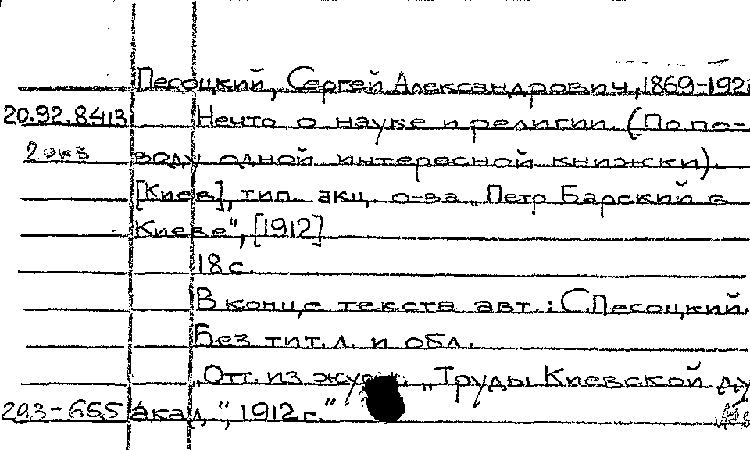 Песоцкий, Сергей Александрович, 1869-192
20.92.8413 Нечто о науке и религии. (По по-
2 экз воду одной интересной книжки).
[Киев], тип. акц. о-ва „Петр Барский в
Киеве", [1912]
18 с.
В конце текста авт.: С. Песоцкий.
Без тит. л. и обл.
Отт. из журн. „Труды Киевской ду
293-655 акад.", 1912 г."